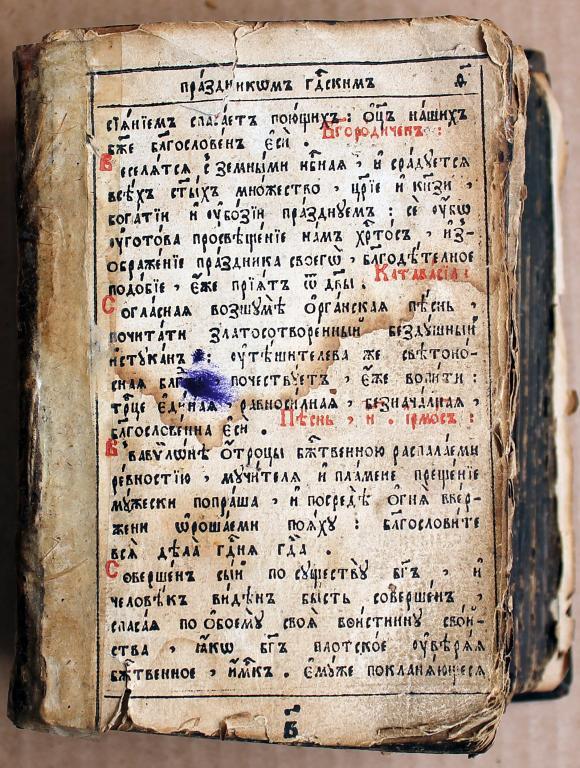 пра́здникѡмъ гд҇скимъ
сїѧ́нїемъ спаса́етъ пою́щихъ : ѻ҆ц҃ъ на́шихъ
бж҃е блгⷭ҇ове́нъ є҆сѝ . Бг҃оро́диченъ :
Веселѧ́тсѧ с̾ земны́ми нбⷭ҇наѧ , и҆ сра́дуетсѧ
всѣ́хъ ст҃ы́хъ мно́жество , цр҃їе и҆ кнѧ̑зи ,
бога́тїи и҆ ᲂу҆бо́зїи пра́зднуемъ : се́ ᲂу҆́бѡ
ᲂу҆гото́ва просвѣще́нїе на́мъ хрⷭ҇то́съ , и҆з-
ѡбраже́нїе пра́здника своегѡ̀ , бл҃годѣ́телное
подо́бїе , є҆́же прїѧ́тъ ѿ дв҃ы . Катава́сїа :
Согла́снаѧ возшꙋмѣ̀ ѻ҆рга́нскаѧ пѣ́снь ,
почита́ти златосотворе́нный безду́шный
и҆стꙋка́нъ : ᲂу҆тѣ́шителева же свѣтоно́-
снаѧ почествꙋ́етъ , є҆́же вопи́ти :
трⷪ҇це є҆ди́наѧ равноси́лнаѧ , безнача́лнаѧ ,
блгⷭ҇ове́нна є҆сѝ . Пѣ́снь , и҃ . і҆рмо́съ :
В̾ вавѷлѡ́нѣ ѻ҆́троцы бжⷭ҇твенною распала́еми
ре́вностїю , мучи́телѧ и҆ пла́мене преще́нїе
мꙋ́жески попра́ша , и҆ посредѣ̀ ѻ҆гнѧ̀ вве́р-
жени ѡ҆роша́еми поѧ́хꙋ : бл҃гослови́те
всѧ̑ дѣла̀ гдⷭ҇нѧ гдⷭ҇а .
Соверше́нъ сы́й по существꙋ̀ бг҃ъ , и҆
человѣ́къ ви́дѣнъ бы́сть соверше́нъ ,
спаса́ѧ по ѻ҆бо́емꙋ своѧ̑ вои́стинну сво́й-
ства , ꙗ҆́кѡ бг҃ъ пло́тское ᲂу҆вѣрѧ́ѧ
бжⷭ҇твенное , и҆́мже . є҆мꙋ́же покланѧ́ющесѧ
в҃